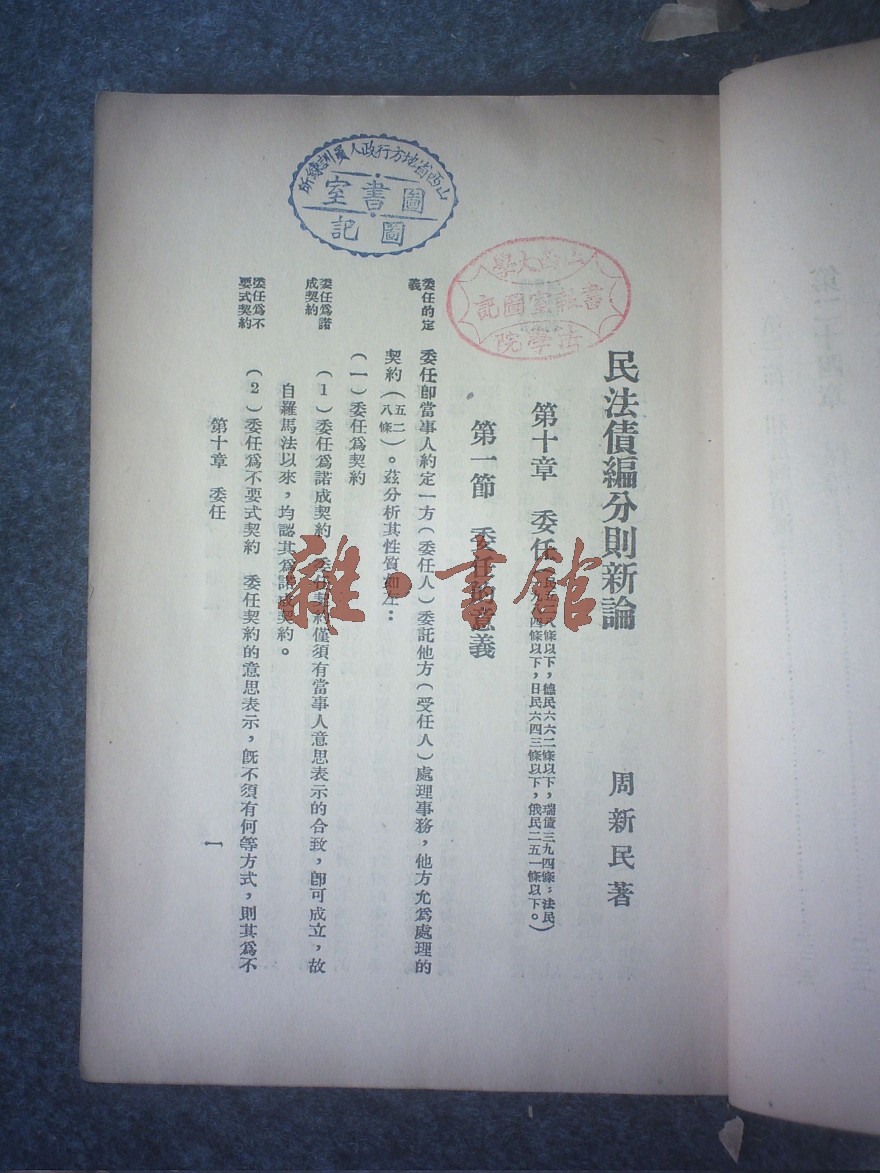 民法債編分則新論
周新民著
第十章 委任
條以下,德民六六二條以下,瑞債三九四條;法民
四條以下,日民六四三條以下,俄民二五一條以下。)
第一節 委任的意義
委任的定
義
委任卽當事人約定一方(委任人)委託他方(受任人)處理事務,他方允爲處理的
契約(五二八條)。茲分析其性質如左:
(一)委任爲契約
委任爲諾
成契約
(1)委任爲諾成契約 委任契約僅須有當事人意思表示的合致,卽可成立,故
自羅馬法以來,均認其爲諾成契約。
委任爲不
要式契約
(2)委任爲不要式契約 委任契約的意思表示,旣不須有何等方式,則其爲不
第十章 委任
一
山西省地方行政人員訓練所
圖書室
圖記
山西大學
書報室圖記
法學院
雜·書館